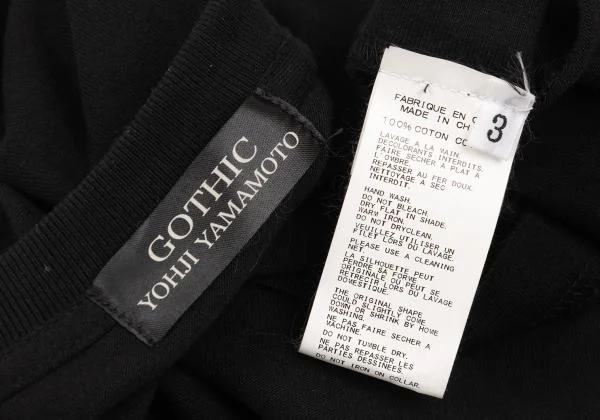 GOTHIC
YOHJI YAMAMOTO
FABRIQUE EN C
MADE IN CH
3
100% COTON CO
LAVAGE A LA MAIN.
DECOLORANTS INTERDITS.
FAIRE SECHER A PLAT A
L'OMBRE.
REPASSER AU FER DOUX.
NETTOYAGE A SEC
INTERDIT.
HAND WASH.
DO NOT BLEACH.
DRY FLAT IN SHADE.
WARM IRON.
DO NOT DRYCLEAN.
VEUILLEZ UTILISER UN
FILET LORS DU LAVAGE.
PLEASE USE A CLEANING
NET.
LA SILHOUETTE PEUT
PERDRE SA FORME
ORIGINALE OU PEUT SE
RETRECIR LORS DU LAVAGE
DOMESTIQUE.
THE ORIGINAL SHAPE
COULD SLIGHTLY COME
DOWN OR SHRINK BY HOME
WASHING.
NE PAS FAIRE SECHER A
MACHINE.
DO NOT TUMBLE DRY.
NE PAS REPASSER LES
PARTIES DESSINEES.
DO NOT IRON ON COLLAR.